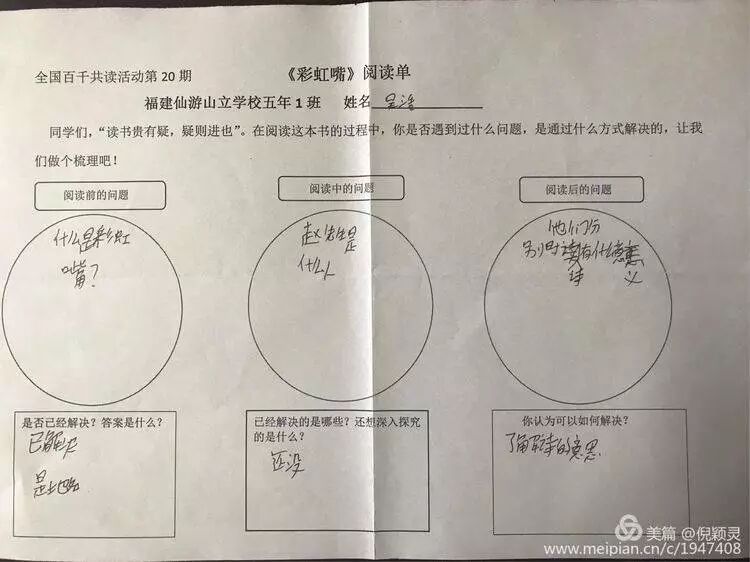 全国百千共读活动第20期
《彩虹嘴》阅读单
福建仙游山立学校五年1班 姓名
同学们，“读书贵有疑，疑则进也”。在阅读这本书的过程中，你是否遇到过什么问题，是通过什么方式解决的，让我
们做个梳理吧！
阅读前的问题
什么是彩虹
嘴？
阅读中的问题
赵先生是
什么人
阅读后的问题
他们分
别时读有什么意义
诗
是否已经解决？答案是什么？
已解决
是地名
已经解决的是哪些？还想深入探究
的是什么？
还没
你认为可以如何解决？
了解诗的意思
美篇 @倪颖灵
www.meipian.cn/c/1947408